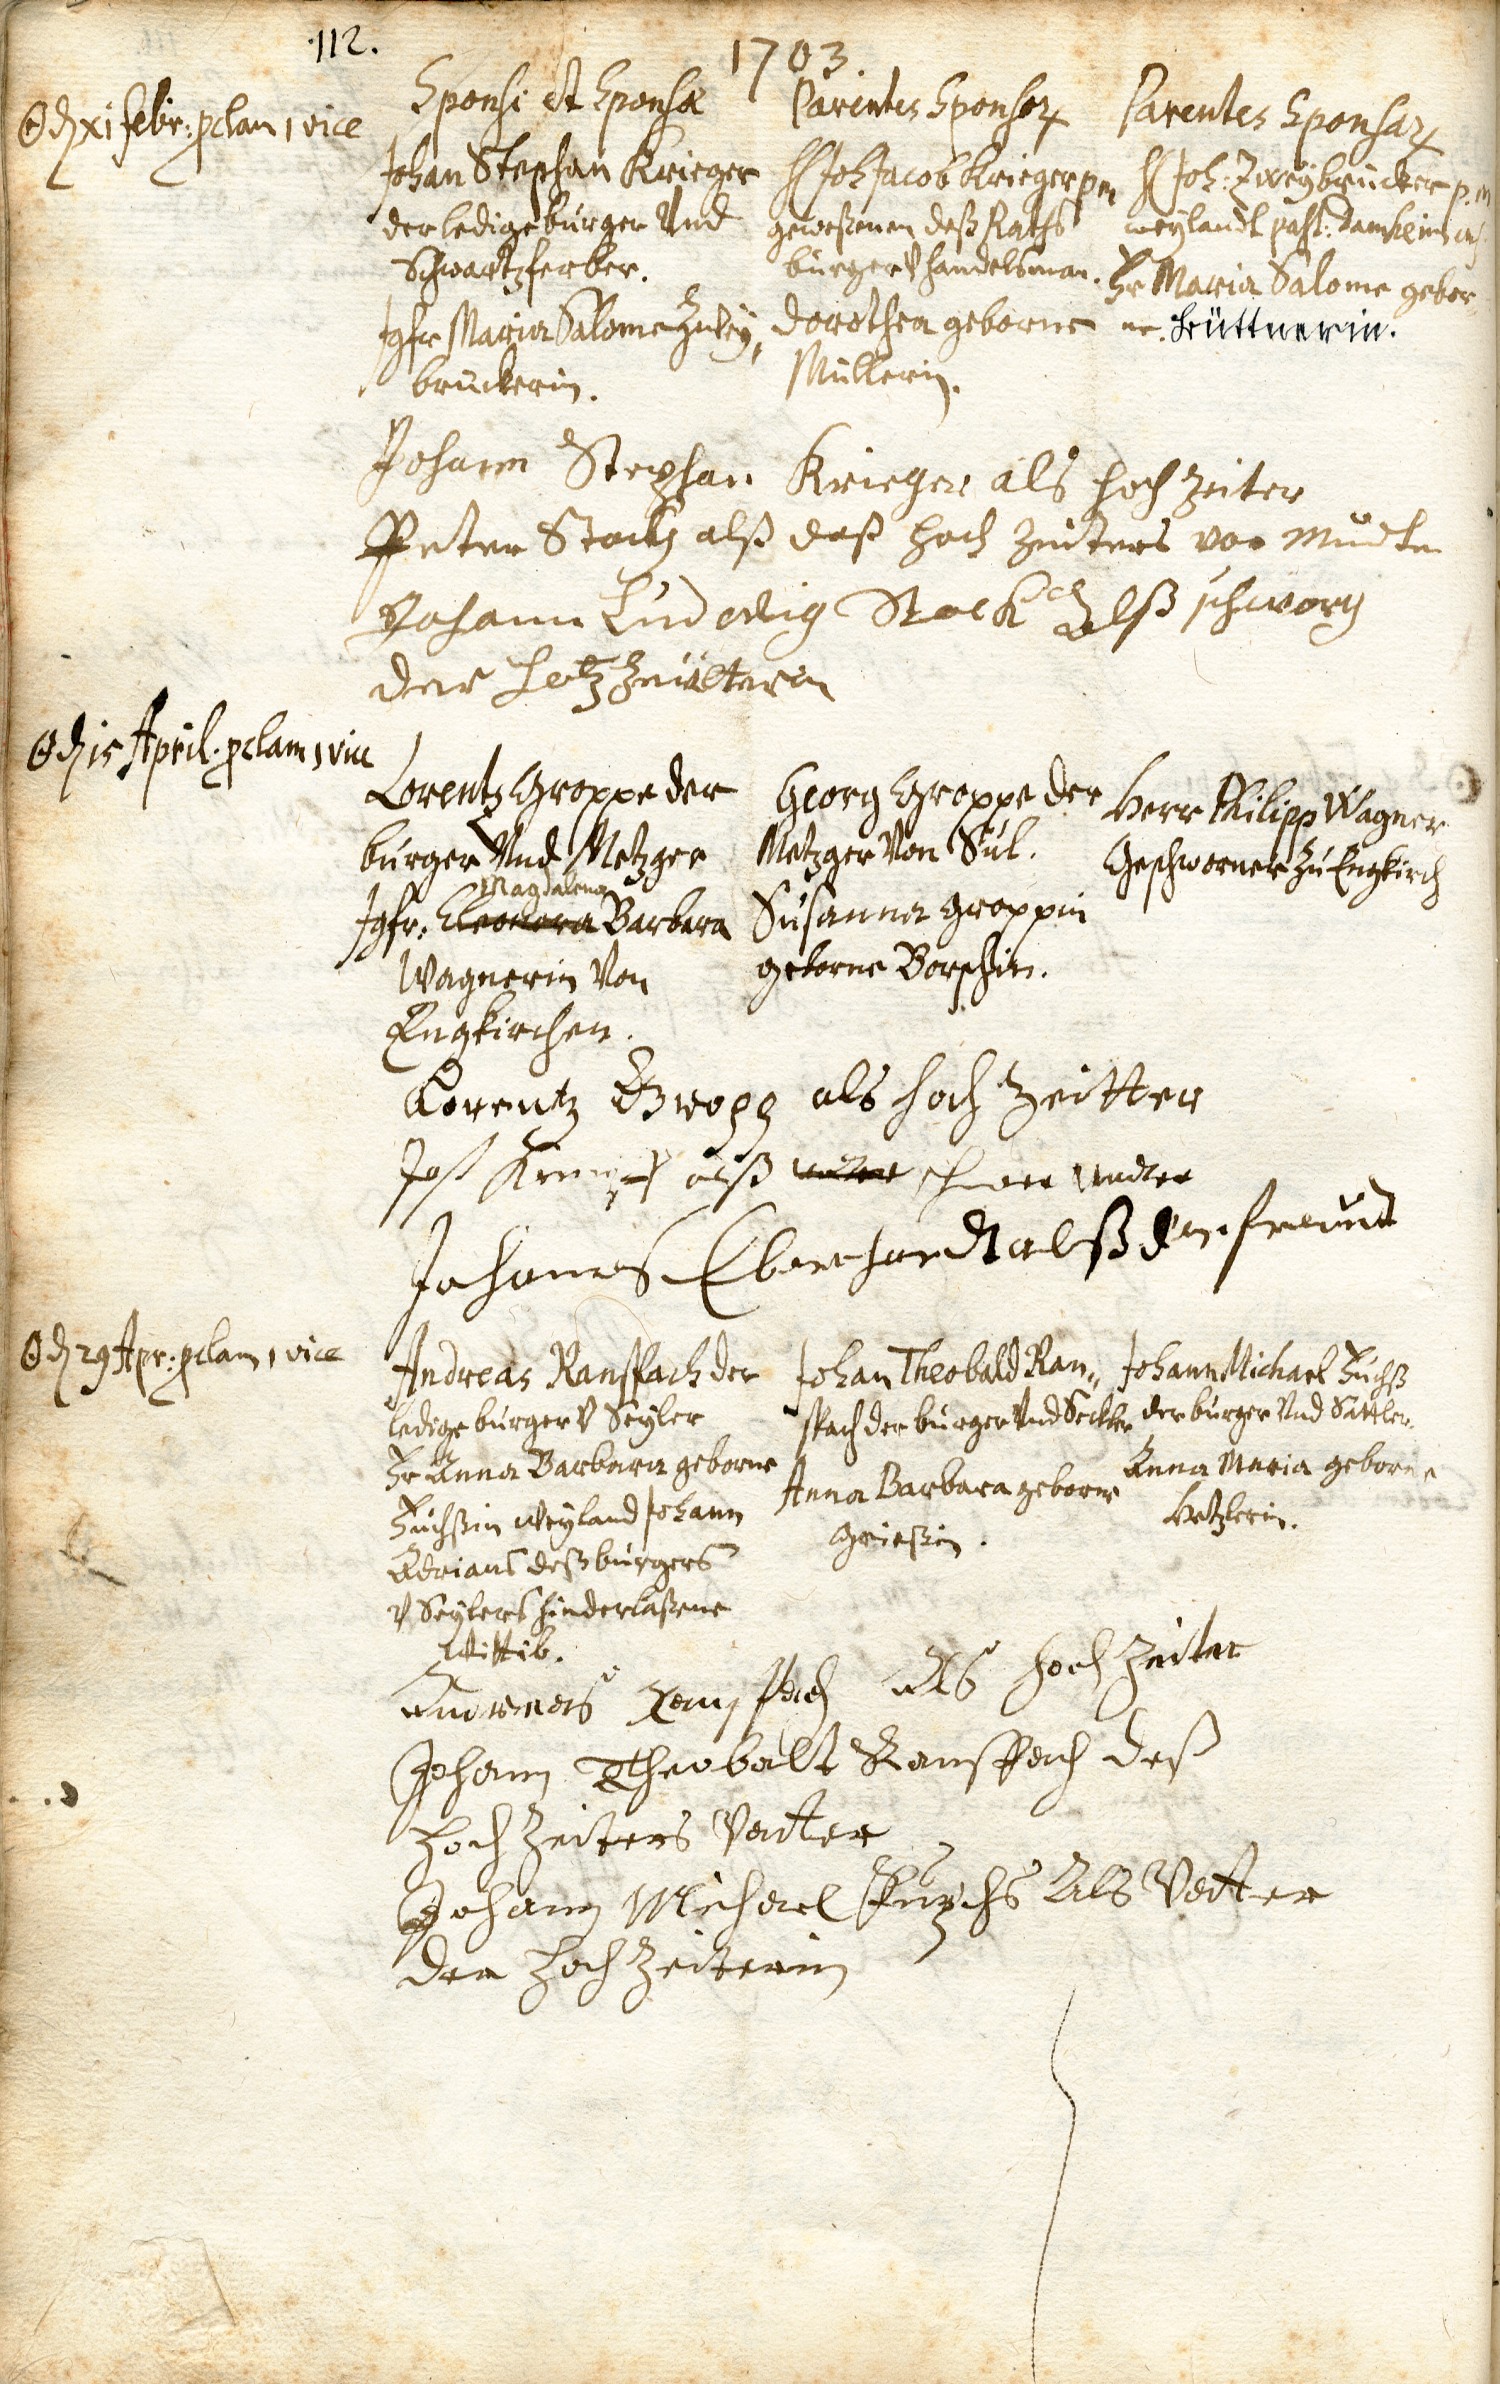 112.
1703.
Sponsi et Sponsæ
Parentes Sponsor
Parentes Sponsar
xi febr: pclam 1 vice
Johan Stephan Krieger
der ledige burger Vnd
Schwartzferber.
Jgfr Maria Salome Zwey,
bruckerin.
H Joh Jacob Krieger pm
geweßenen deß Raths
burger V handelsman.
Dorothea geborne
Müllerin.
H Joh: Zweybrucker p.m
weylandt past: Damheim
Fr Maria Salome gebor
ne. Hüttnerin.
Johann Stephan Krieger als hochzeiter
Peter Stock alß deß hoch zeiters
Johann Ludwig Stock alß schworg
der
15 April. pclam 1 vice
Lorentz Groppe der
burger Vnd Metzger
Magdalena
Jgfr: Eleonora Barbara
Wagnerin Von
Engkirchen.
Georg Groppe der
Metzger Von Sul.
Susanna Groppin
geborne Borschin.
Herr Philipp Wagner
Geschworner Zu Engkirch
Lorentz Gropp als hoch Zeitter
Jost alß
Johannes Eberhardt alß freund
29 Apr: pclam 1 vice
Andreas Ranspach der
ledige burger V Seyler
Fr Anna Barbara geborne
Fuchßin weyland Johann
Adrians deß burgers
V Seylers hinderlaßene
Wittib.
Johan Theobald Ran„
spach der burger Vnd Seckler
Anna Barbara geborne
Grießin.
Johann Michael Fuchß
der burger Vnd Sattler.
Anna Maria geborne
Hetzlerin.
Andreas Ranspach Als hoch Zeiter
Johann Theobalt Ranspach deß
hoch Zeiters Vatter
Johann Michael Fuchs Als Vatter
der hoch Zeiterin